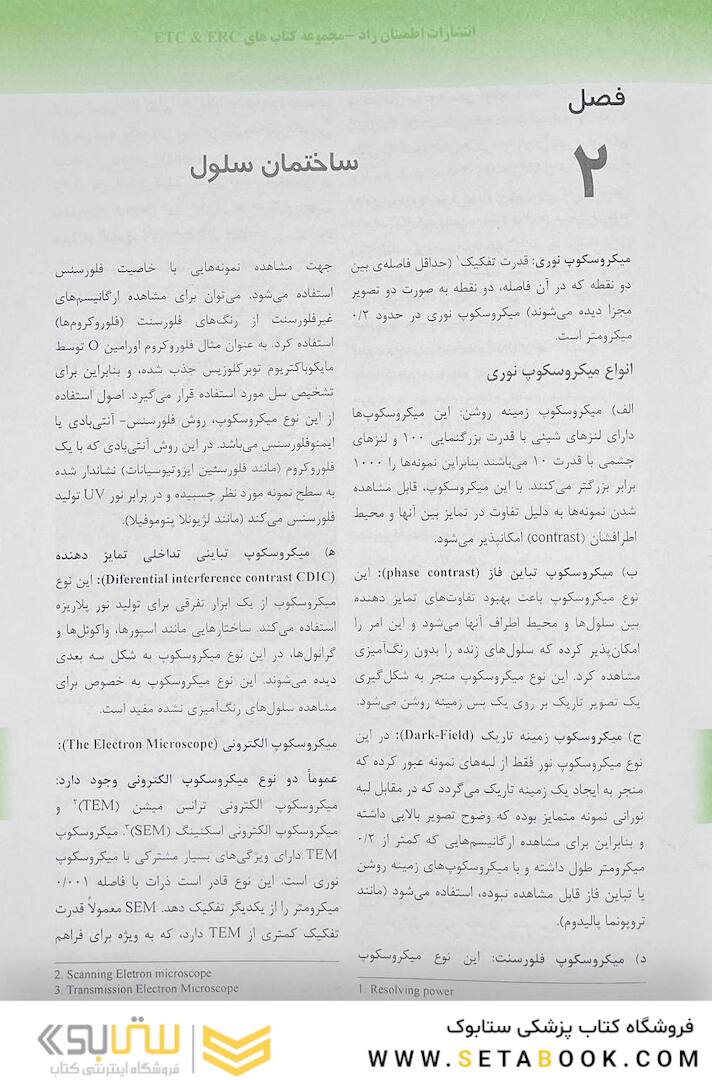 انتشارات اطمینان راد –مجموعه کتاب های ETC & ERC
فصل
۲
ساختمان سلول
میکروسکوپ نوری: قدرت تفکیک۱ (حداقل فاصله‌ی بین
دو نقطه که در آن فاصله، دو نقطه به صورت دو تصویر
مجزا دیده می‌شوند) میکروسکوپ نوری در حدود ۰/۲
میکرومتر است.
انواع میکروسکوپ نوری
الف) میکروسکوپ زمینه روشن: این میکروسکوپ‌ها
دارای لنزهای شیئی با قدرت بزرگنمایی ۱۰۰ و لنزهای
چشمی با قدرت ۱۰ می‌باشند بنابراین نمونه‌ها را ۱۰۰۰
برابر بزرگتر می‌کنند. با این میکروسکوپ، قابل مشاهده
شدن نمونه‌ها به دلیل تفاوت در تمایز بین آنها و محیط
اطرافشان (contrast) امکانپذیر می‌شود.
ب) میکروسکوپ تباین فاز (phase contrast): این
نوع میکروسکوپ باعث بهبود تفاوت‌های تمایز دهنده
بین سلول‌ها و محیط اطراف آنها می‌شود و این امر را
امکان‌پذیر کرده که سلول‌های زنده را بدون رنگ‌آمیزی
مشاهده کرد. این نوع میکروسکوپ منجر به شکل‌گیری
یک تصویر تاریک بر روی یک پس زمینه روشن می‌شود.
ج) میکروسکوپ زمینه تاریک (Dark-Field): در این
نوع میکروسکوپ نور فقط از لبه‌های نمونه عبور کرده که
منجر به ایجاد یک زمینه تاریک می‌گردد که در مقابل لبه
نورانی نمونه متمایز بوده که وضوح تصویر بالایی داشته
و بنابراین برای مشاهده ارگانیسم‌هایی که کمتر از ۰/۲
میکرومتر طول داشته و با میکروسکوپ‌های زمینه روشن
یا تباین فاز قابل مشاهده نبوده، استفاده می‌شود (مانند
تروپونما پالیدوم).
د) میکروسکوپ فلورسنت: این نوع میکروسکوپ
1. Resolving power
جهت مشاهده نمونه‌هایی با خاصیت فلورسنس
استفاده می‌شود. می‌توان برای مشاهده ارگانیسم‌های
غیرفلورسنت از رنگ‌های فلورسنت (فلوروکروم‌ها)
استفاده کرد. به عنوان مثال فلوروکروم اورامین O توسط
مایکوباکتریوم توبرکلوزیس جذب شده، و بنابراین برای
تشخیص سل مورد استفاده قرار می‌گیرد. اصول استفاده
از این نوع میکروسکوپ، روش فلورسنس- آنتی‌بادی یا
ایمنوفلورسنس می‌باشد. در این روش آنتی‌بادی که با یک
فلوروکروم (مانند فلورسئین ایزوتیوسیانات) نشاندار شده
به سطح نمونه مورد نظر چسبیده و در برابر نور UV تولید
فلورسنس می‌کند (مانند لژیونلا پنوموفیلا).
ه) میکروسکوپ تباینی تداخلی تمایز دهنده
(Diferential interference contrast CDIC): این نوع
میکروسکوپ از یک ابزار تفرقی برای تولید نور پلاریزه
استفاده می‌کند. ساختارهایی مانند اسپورها، واکوئل‌ها و
گرانول‌ها، در این نوع میکروسکوپ به شکل سه بعدی
دیده می‌شوند. این نوع میکروسکوپ به خصوص برای
مشاهده سلول‌های رنگ‌آمیزی نشده مفید است.
میکروسکوپ الکترونی (The Electron Microscope):
عموماً دو نوع میکروسکوپ الکترونی وجود دارد:
میکروسکوپ الکترونی ترانس میشن (TEM)۲ و
میکروسکوپ الکترونی اسکنینگ (SEM)۳. میکروسکوپ
TEM دارای ویژگی‌های بسیار مشترکی با میکروسکوپ
نوری است. این نوع قادر است ذرات با فاصله ۰/۰۰۱
میکرومتر را از یکدیگر تفکیک دهد. SEM معمولاً قدرت
تفکیک کمتری از TEM دارد، که به ویژه برای فراهم
2. Scanning Eletron microscope
3. Transmission Electron Microscope
فروشگاه کتاب پزشکی ستابوک
WWW.SETABOOK.COM
ستابوک
فروشگاه اینترنتی کتاب